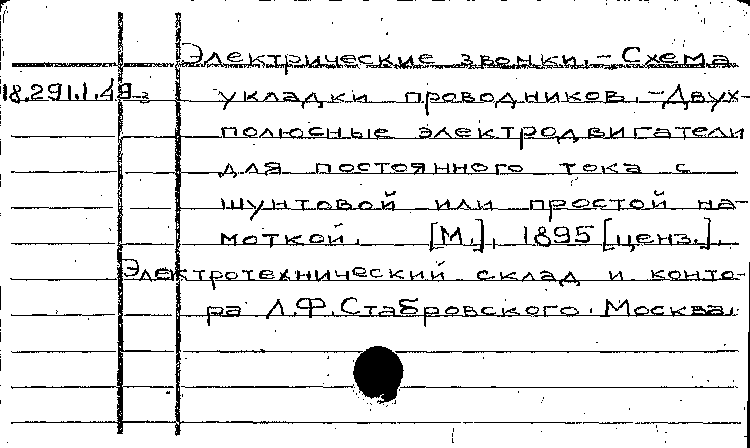 Электрические звонки.-Схема
18.291.1.49з укладки проводников.-Двух-
полюсные электродвигатели
для постоянного тока с
шунтовой или простой на-
моткой. [М.], 1895 [ценз.].
Электротехнический склад и конто-
ра Л.Ф.Стабровского. Москва.